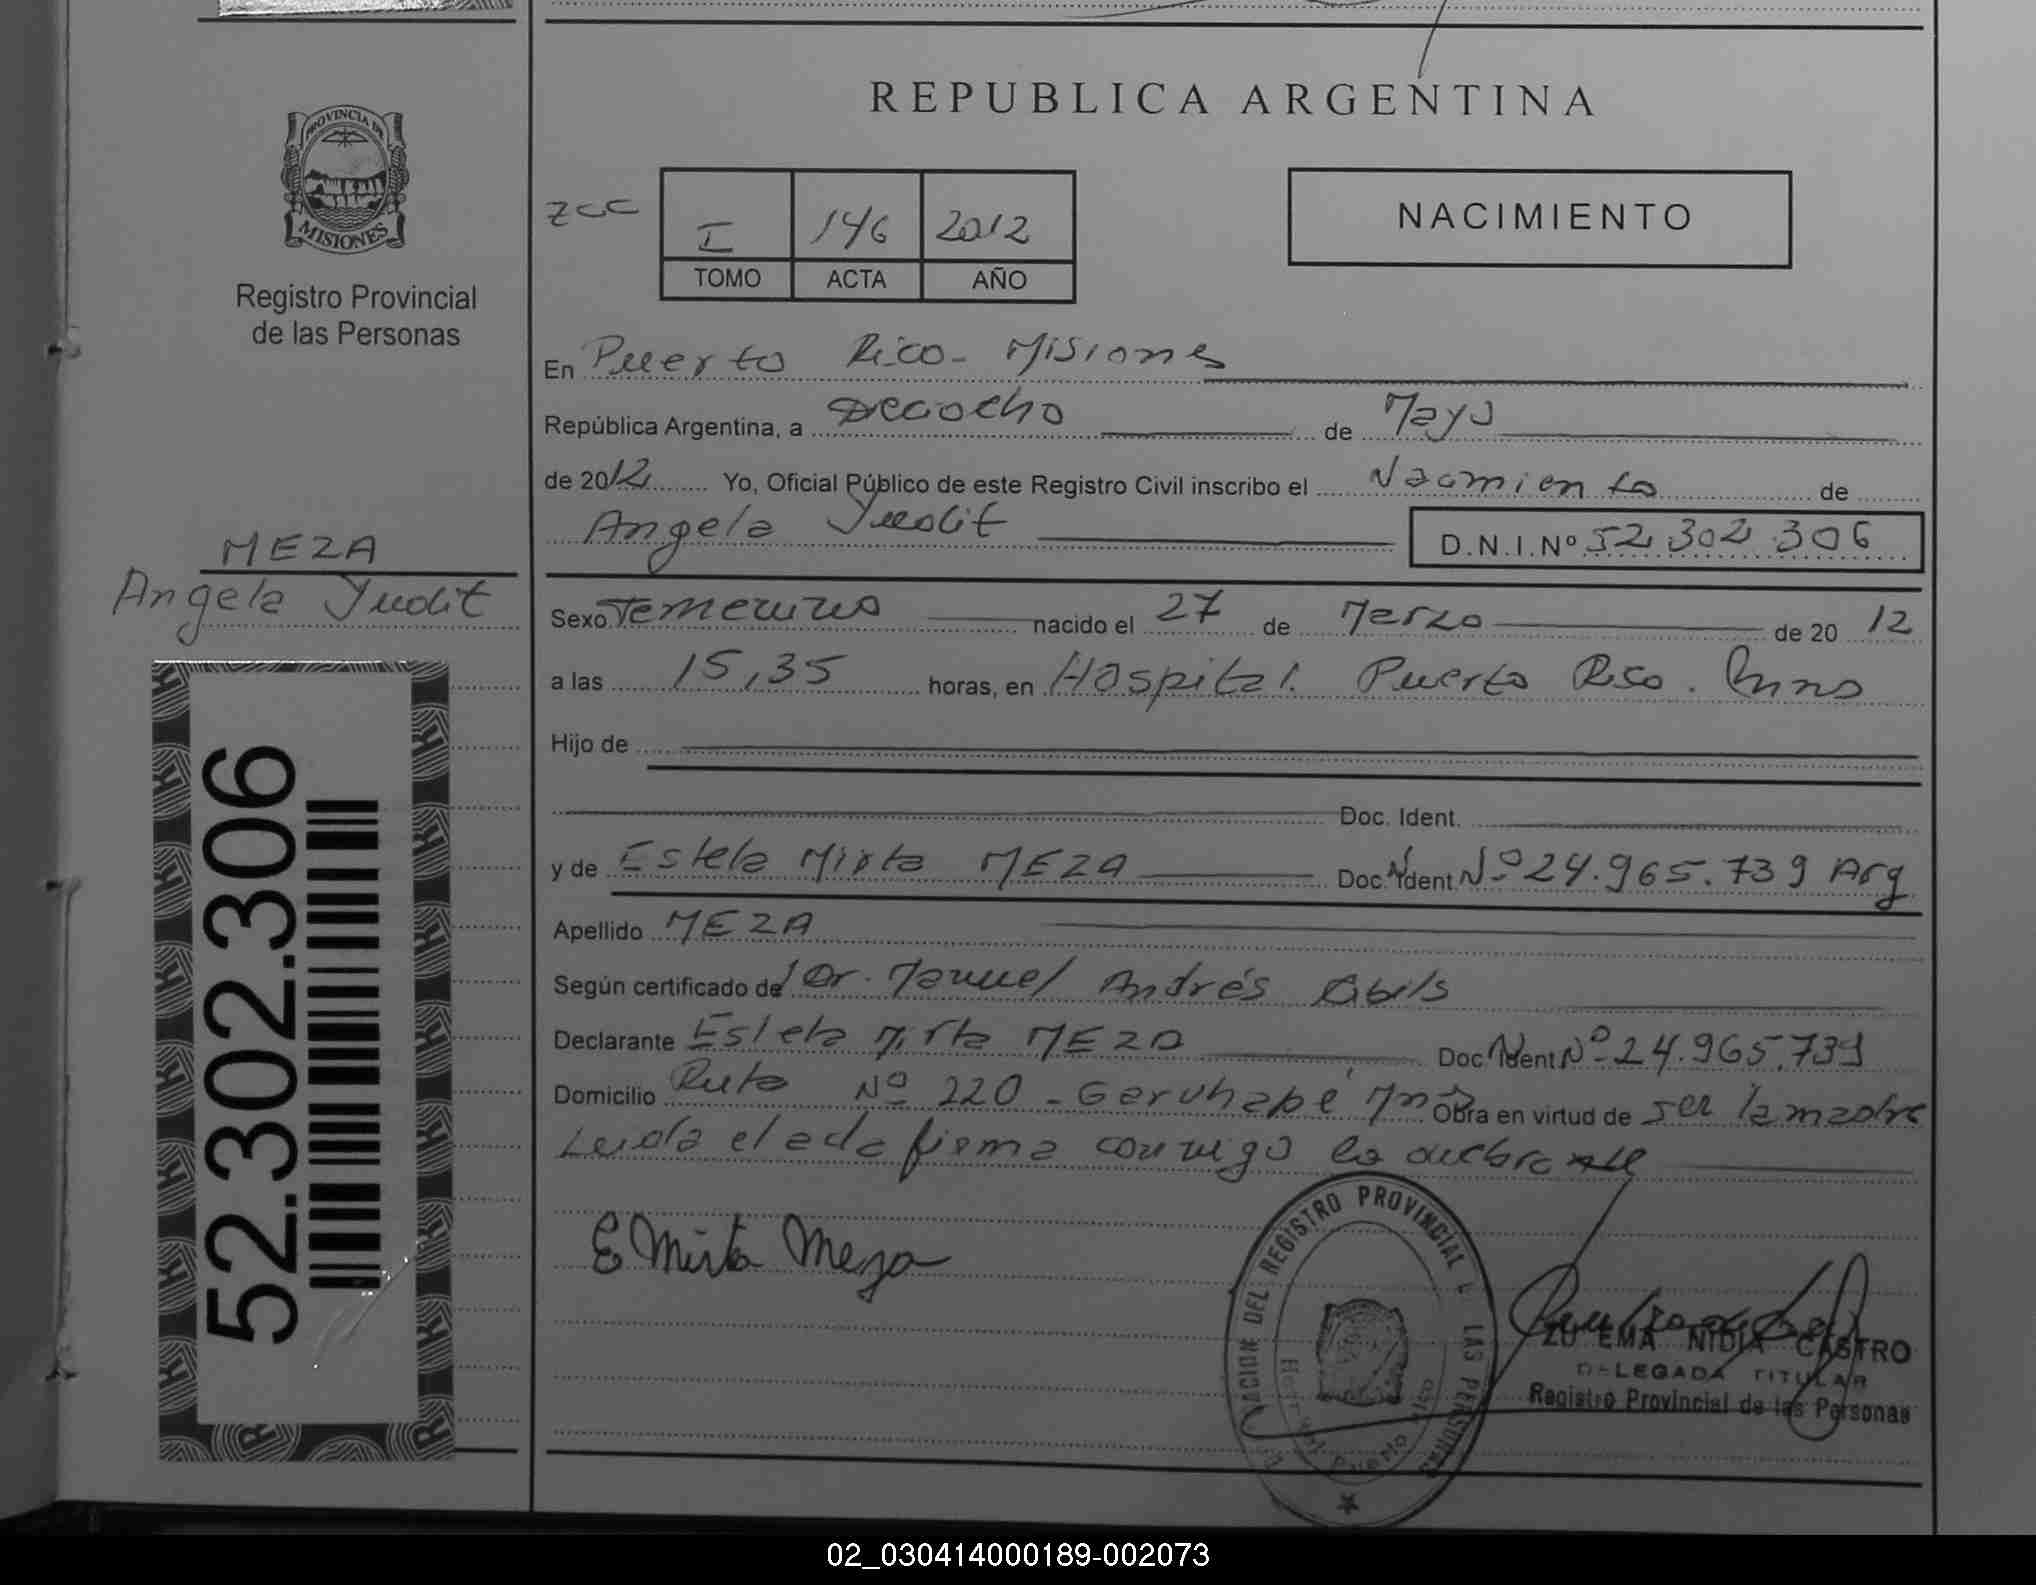 REPUBLICA ARGENTINA
PROVINCIA DE
MISIONES
Registro Provincial
de las Personas
I 146 2012
TOMO ACTA AÑO
NACIMIENTO
En Puerto Rico - Misiones
República Argentina, a Dieciocho de Mayo
de 2012 Yo, Oficial Público de este Registro Civil inscribo el Nacimiento de
Angela Yudit D.N.I.Nº 52.302.306
MEZA
Angela Yudit
52.302.306
Sexo Femenino nacido el 27 de Marzo de 20 12
a las 15,35 horas, en Hospital. Puerto Rico.
Hijo de
Doc. Ident.
y de Estela Mirta MEZA Doc. Ident Nº 24.965.739 Arg
Apellido MEZA
Según certificado del Dr. Manuel Andrés
Declarante Estela Mirta MEZA Doc Ident Nº 24.965.739
Domicilio Ruta Nº 220 - Garuhapé Mnes Obra en virtud de ser la madre
Leida el acta firma conmigo la declarante
E Mirta Meza
DEL REGISTRO PROVINCIAL LAS PERSONAS
Puerto Rico
ZULEMA NIDIA CASTRO
DELEGADA TITULAR
Registro Provincial de las Personas
02_030414000189-002073